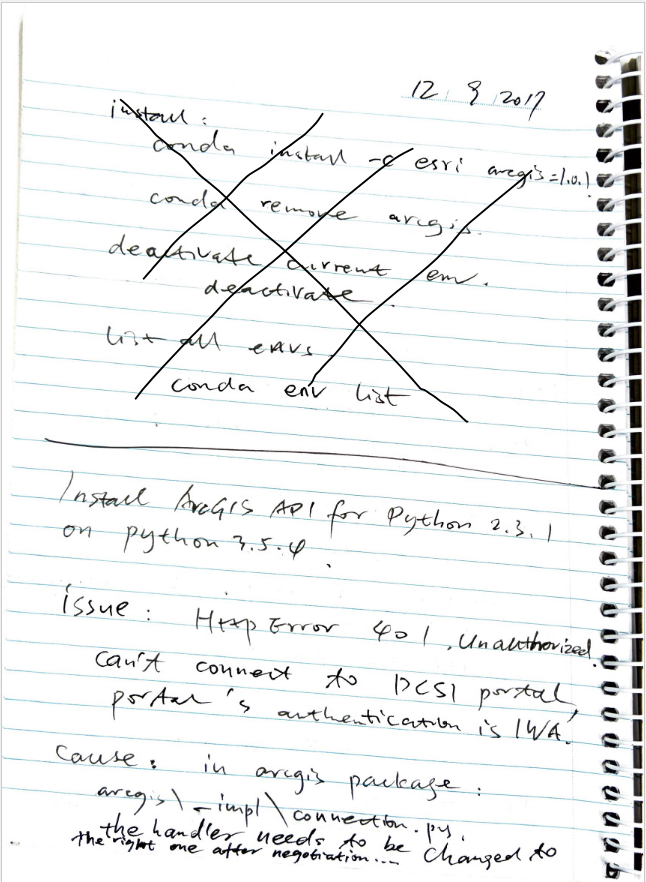 12 9 2017
install:
conda install -c esri arcgis=1.0.1
conda remove arcgis.
deactivate current env.
deactivate.
list all envs
conda env list
Install ArcGIS API for Python 2.3.1
on python 3.5.4.
issue: Http Error 401, Unauthorized.
can't connect to DCSI portal,
portal's authentication is IWA.
Cause: in arcgis package:
arcgis\_impl\connection.py.
the handler needs to be changed to
the right one after negotiation...